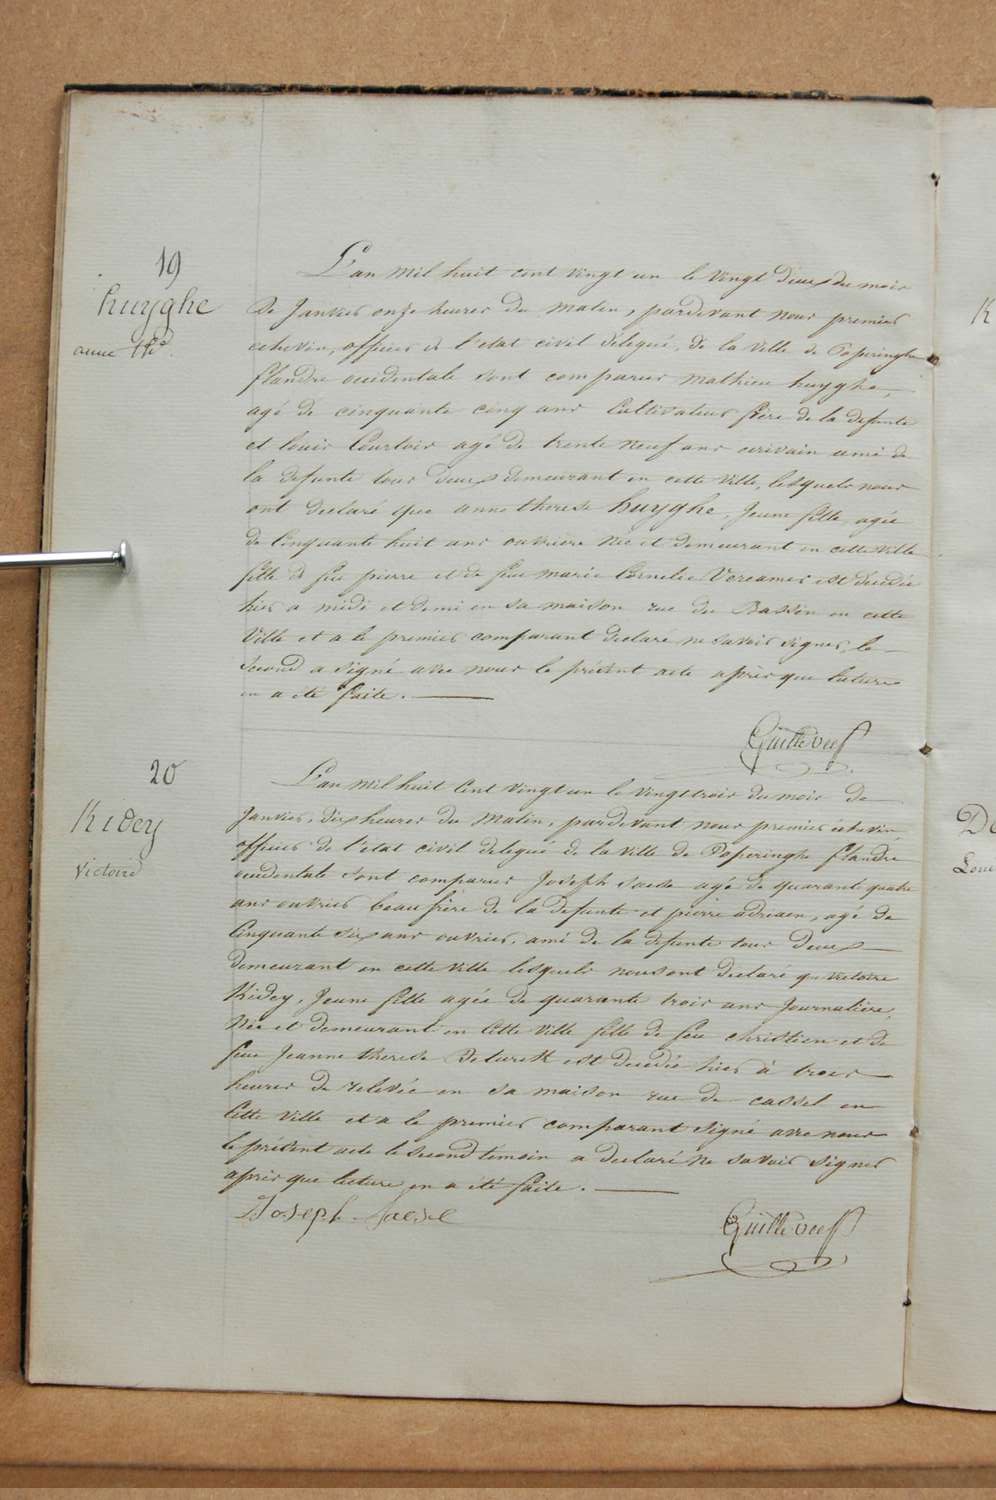 19
huyghe
anne thse
L'an mil huit cent vingt un le vingt deux du mois
de Janvier onze heures du matin, pardevant nous premier
echevin, officier de l'etat civil délegué, de la ville de Poperinghe
flandre occidentale sont comparus mathieu huyghe,
agé de cinquante cinq ans Cultivateur frère de la defunte
et louis Courtois agé de trente neuf ans ecrivain ami de
la defunte tous deux demeurant en cette ville, lesquels nous
ont declaré que anne therese huyghe, Jeune fille, agée
de Cinquante huit ans ouvriere née et demeurant en cette ville
fille de feu pierre et de feue marie Cornelie Vereames est decedée
hier a midi et demi en sa maison rue du Bassin en cette
ville et a le premier comparant declaré ne savoir signer, le
second a signé avec nous le présent acte après que lecture
en a été faite.
Guillevoeff
20
Kidey
victoire
L'an mil huit Cent vingt un le vingttrois du mois de
Janvier, dix heures du matin, pardevant nous premier échevin
officier de l'etat civil delegué de la ville de Poperinghe flandre
occidentale sont comparus Joseph Saesse agé de quarante quatre
ans ouvrier beaufrère de la defunte et pierre adriaen, agé de
Cinquante six ans ouvrier, ami de la defunte tous deux
demeurant en cette ville lesquels nous ont declaré q. victoire
Kidey, Jeune fille agée de quarante trois ans Journalière,
Née et demeurant en Cette ville fille de feu christien et de
feue Jeanne therese Deturck est decedée hier à trois
heures de relevée en sa maison rue de cassel en
Cette ville et a le premier comparant signé avec nous
le présent acte le second témoin a declaré ne savoir signer
après que lecture en a été faite.
Joseph Saesse
Guillevoeff
K
De
Loui